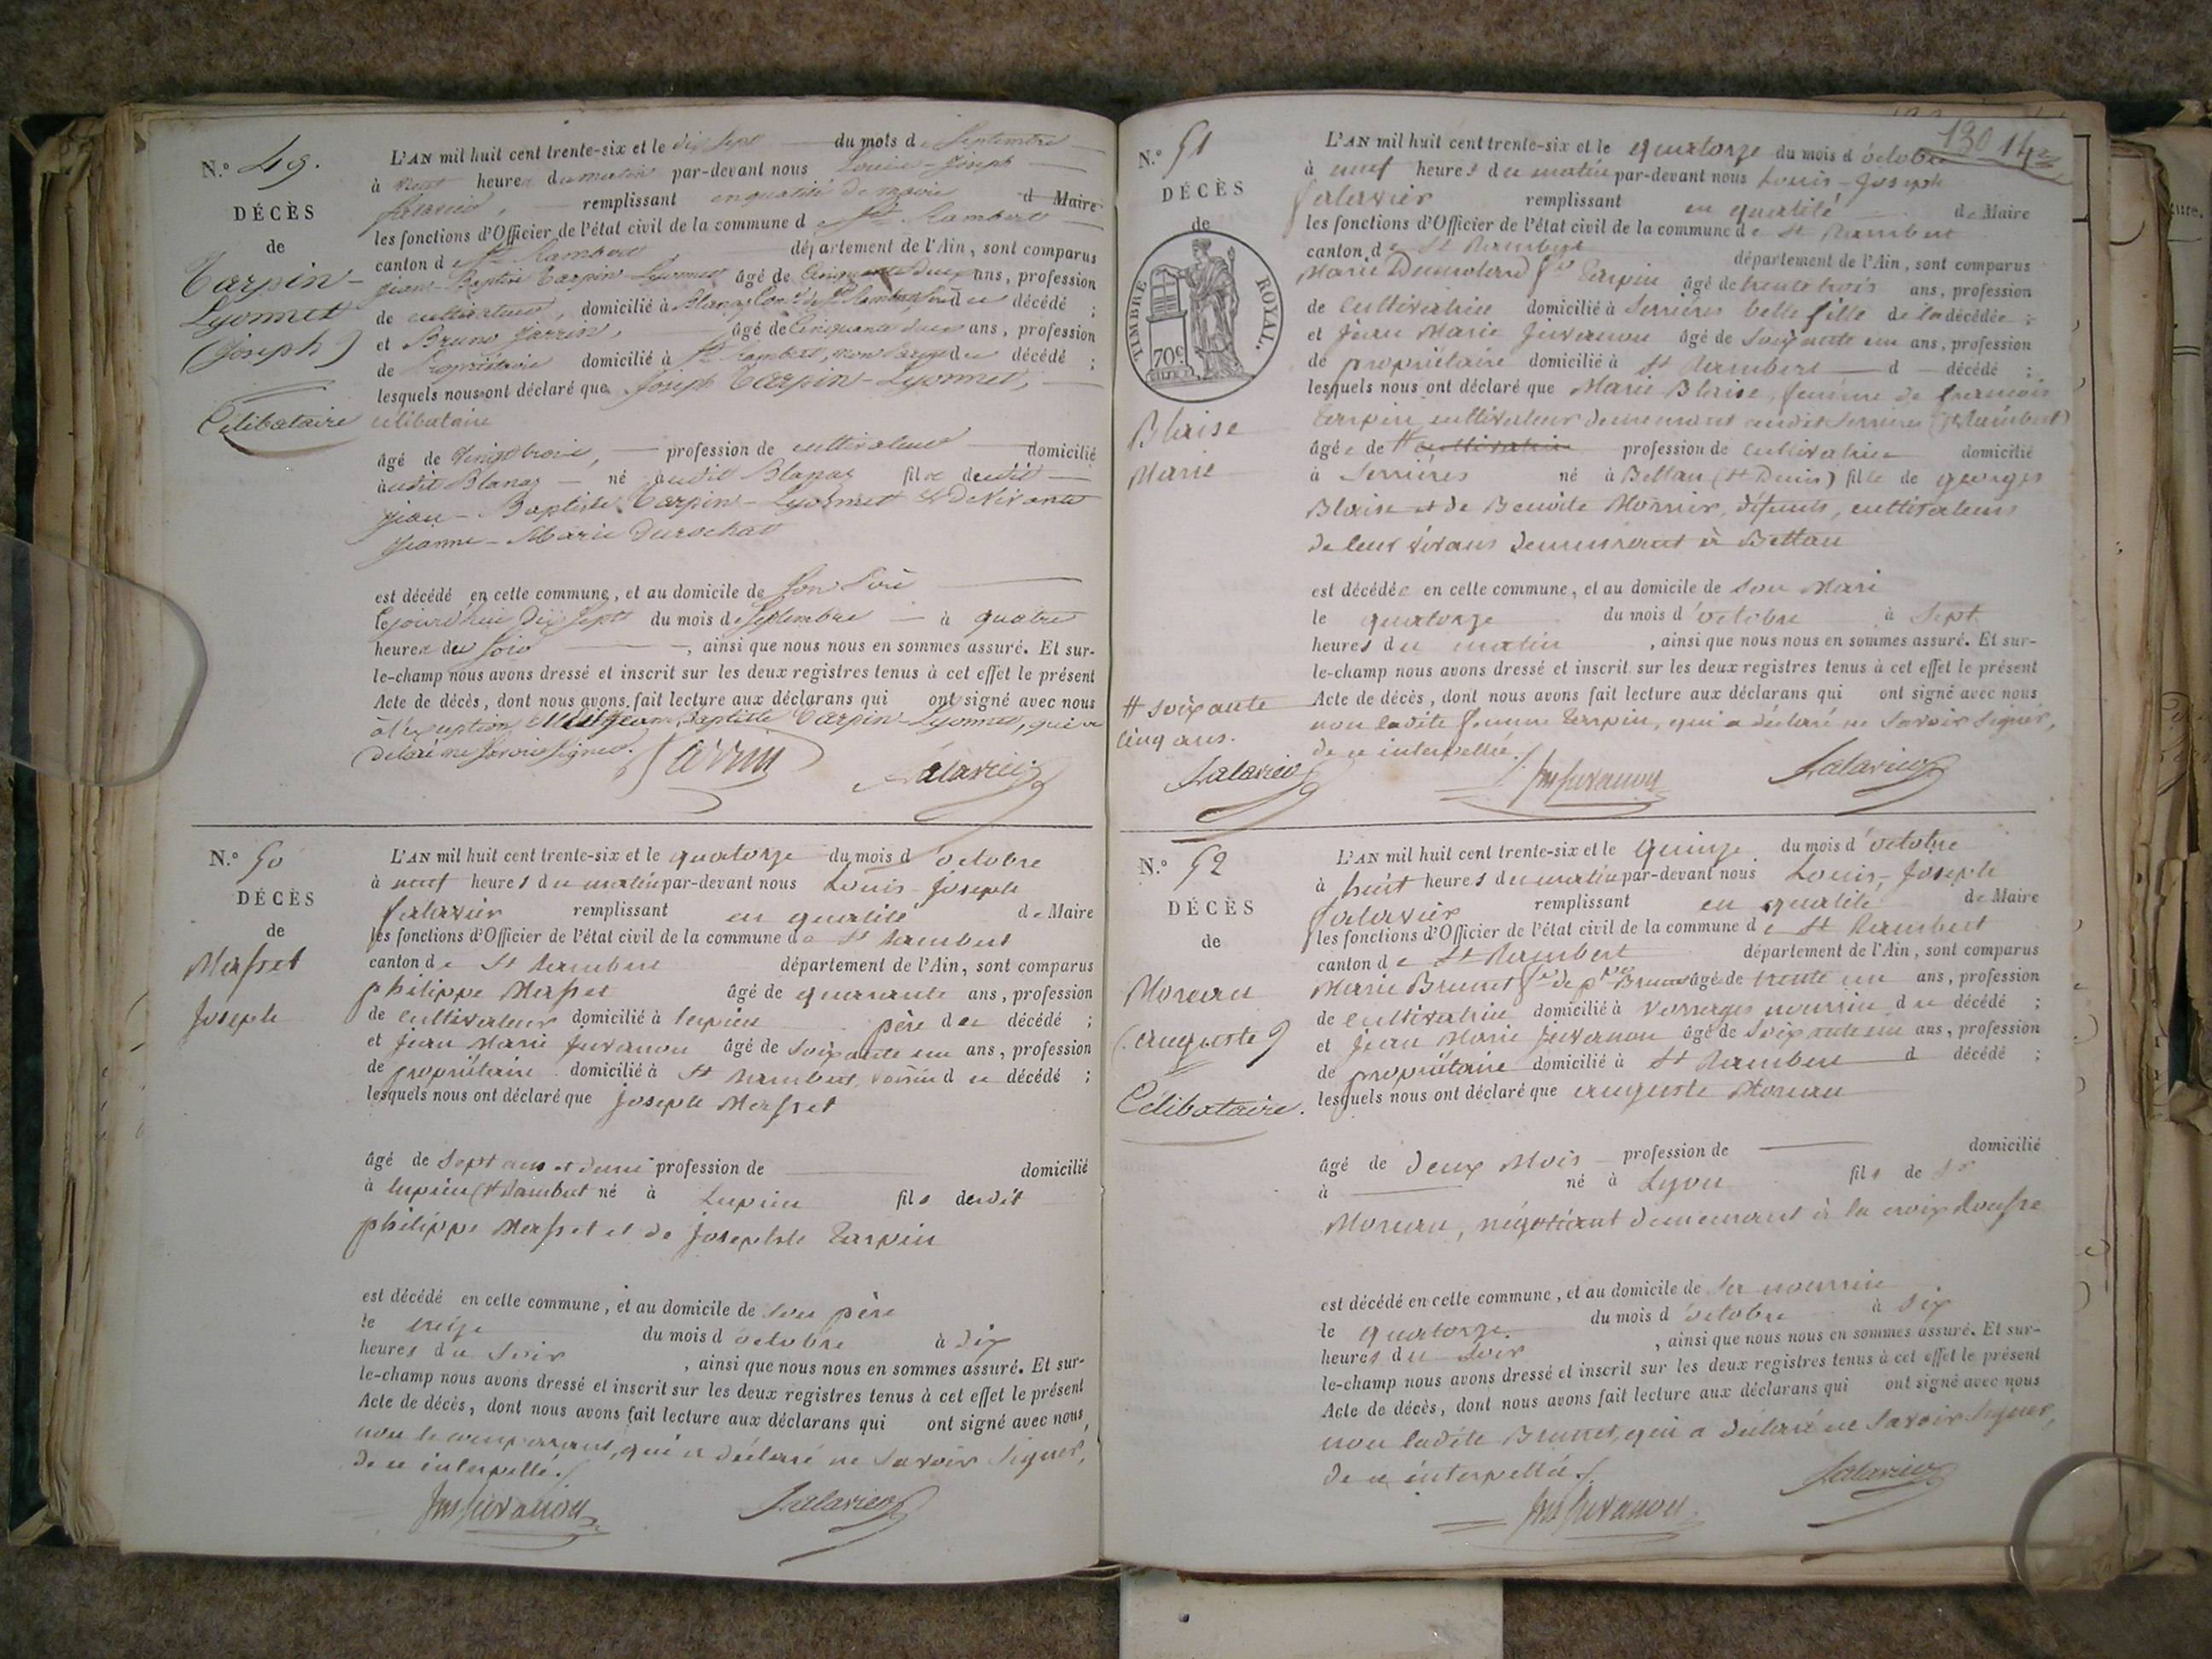 N.° 49.
DÉCÈS
de
Tarpin-
Lyonnet
(Joseph)
Célibataire
L'AN mil huit cent trente-six et le dix sept du mois de Septembre
à neuf heures du matin par-devant nous Louis-Joseph
Salavier, remplissant en qualité de maire d Maire
les fonctions d'Officier de l'état civil de la commune de St Rambert
canton de St Rambert département de l'Ain, sont comparus
Jean-Baptiste Tarpin-Lyonnet âgé de Cinquante deux ans, profession
de cultivateur, domicilié à Blanaz Comne de St Rambert, du décédé ;
et Bruno Jarrin, âgé de Cinquante deux ans, profession
de Propriétaire domicilié à St Rambert, non parent du décédé ;
lesquels nous ont déclaré que Joseph Tarpin-Lyonnet,
célibataire
âgé de Vingt trois, profession de cultivateur domicilié
audit Blanaz né audit Blanaz fils dudit
Jean-Baptiste Tarpin-Lyonnet & de vivante
Jeanne-Marie Durochat
est décédé en cette commune, et au domicile de son Père
Cejourd'hui dix Sept du mois de Septembre à quatre
heures du Soir, ainsi que nous nous en sommes assuré. Et sur-
le-champ nous avons dressé et inscrit sur les deux registres tenus à cet effet le présent
Acte de décès, dont nous avons fait lecture aux déclarans qui ont signé avec nous
à l'exception dudit Jean Baptiste Tarpin-Lyonnet, qui a
déclaré ne savoir signer.
Jarrin Salavier
N.° 50
DÉCÈS
de
Masset
Joseph
L'AN mil huit cent trente-six et le quatorze du mois d'octobre
à neuf heures du matin par-devant nous Louis-Joseph
Salavier remplissant en qualité de Maire
les fonctions d'Officier de l'état civil de la commune de St Rambert
canton de St Rambert département de l'Ain, sont comparus
philippe Masset âgé de quarante ans, profession
de cultivateur domicilié à lupieu père du décédé ;
et Jean Marie Juvanon âgé de soixante un ans, profession
de propriétaire domicilié à St Rambert, voisin du décédé ;
lesquels nous ont déclaré que Joseph Masset
âgé de Sept ans et demi profession de domicilié
à lupieu (St Rambert né à Lupieu fils dudit
philippe Masset et de Josephte Tarpin
est décédé en cette commune, et au domicile de son père
le treize du mois d'octobre à dix
heures du soir, ainsi que nous nous en sommes assuré. Et sur-
le-champ nous avons dressé et inscrit sur les deux registres tenus à cet effet le présent
Acte de décès, dont nous avons fait lecture aux déclarans qui ont signé avec nous,
non le comparant, qui a déclaré ne savoir signer,
de ce interpellé./.
Jm Juvanon Salavier
130 14
N.° 51
DÉCÈS
de
TIMBRE ROYAL.
70c
Blaise
Marie
# soixante
cinq ans.
Salavier
L'AN mil huit cent trente-six et le quatorze du mois d'octobre
à neuf heures du matin par-devant nous Louis-Joseph
Salavier remplissant en qualité de Maire
les fonctions d'Officier de l'état civil de la commune de St Rambert
canton de St Rambert département de l'Ain, sont comparus
Marie Dumolard fe Tarpin âgé de trente trois ans, profession
de cultivatrice domicilié à Serrières belle fille de la décédée ;
et Jean Marie Juvanon âgé de soixante un ans, profession
de propriétaire domicilié à St Rambert d décédé ;
lesquels nous ont déclaré que Marie Blaise, femme de francois
Tarpin cultivateur demeurant audit Serrières (St Rambert)
âgée de # cultivatrice profession de cultivatrice domicilié
à Serrières né à Bettan (St Denis) fille de georges
Blaise et de Benoite Monnier, défunts, cultivateurs
de leur vivans demeurant à Bettan
est décédée en cette commune, et au domicile de son Mari
le quatorze du mois d'octobre à sept
heures du matin, ainsi que nous nous en sommes assuré. Et sur-
le-champ nous avons dressé et inscrit sur les deux registres tenus à cet effet le présent
Acte de décès, dont nous avons fait lecture aux déclarans qui ont signé avec nous
non ladite femme Tarpin, qui a déclaré ne savoir signer,
de ce interpellée./.
Jm Juvanon Salavier
N.° 52
DÉCÈS
de
Moreau
(auguste)
Célibataire.
L'AN mil huit cent trente-six et le quinze du mois d'octobre
à huit heures du matin par-devant nous Louis-Joseph
Salavier remplissant en qualité de Maire
les fonctions d'Officier de l'état civil de la commune de St Rambert
canton de St Rambert département de l'Ain, sont comparus
Marie Brunet fe de pre Brunet âgé de trente un ans, profession
de cultivatrice domicilié à Vorages nourrice du décédé ;
et Jean Marie Juvanon âgé de soixante un ans, profession
de propriétaire domicilié à St Rambert d décédé ;
lesquels nous ont déclaré que auguste Moreau
âgé de deux Mois profession de domicilié
à né à Lyon fils de Sr
Moreau, négotiant demeurant à la croix Rousse
est décédé en cette commune, et au domicile de sa nourrice
le quatorze du mois d'octobre à six
heures du soir, ainsi que nous nous en sommes assuré. Et sur-
le-champ nous avons dressé et inscrit sur les deux registres tenus à cet effet le présent
Acte de décès, dont nous avons fait lecture aux déclarans qui ont signé avec nous
non ladite Brunet, qui a déclaré ne savoir signer,
de ce interpellée./.
Jm Juvanon Salavier